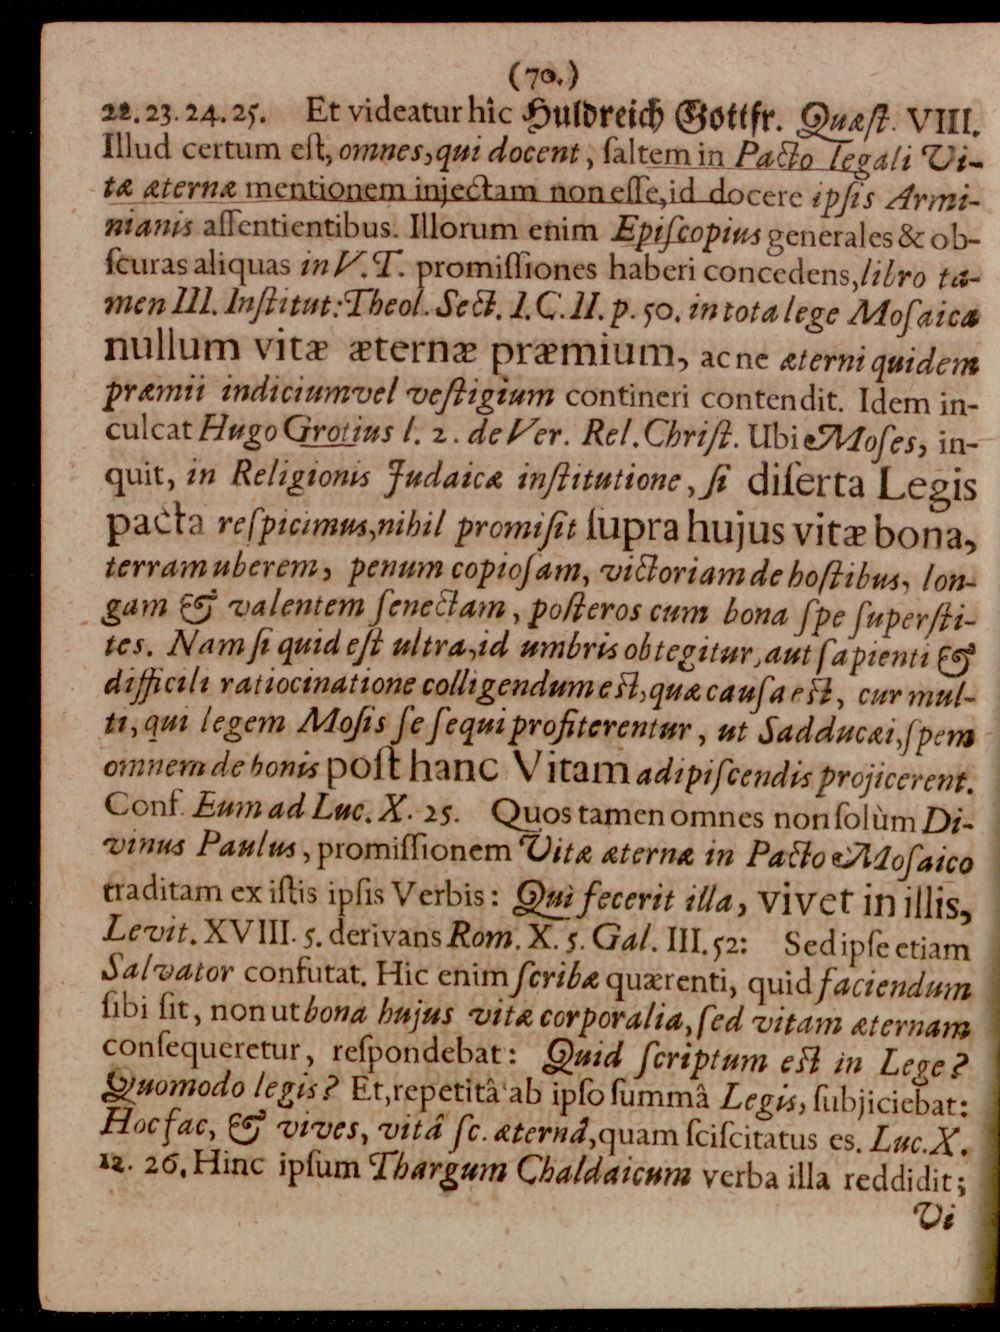 (70.)
22. 23. 24. 25. Et videatur hîc Huldreich Gottfr. Quæſt. VIII.
Illud certum eſt, omnes, qui docent, ſaltem in Pacto legali Vi-
tæ æternæ mentionem injectam non eſſe, id docere ipſis Armi-
nianis aſſentientibus. Illorum enim Epiſcopius generales & ob-
ſcuras aliquas in V. T. promiſſiones haberi concedens, libro ta-
men III. Inſtitut: Theol. Sect. I. C. II. p. 50. in tota lege Moſaica
nullum vitæ æternæ præmium, ac ne æterni quidem
præmii indicium vel veſtigium contineri contendit. Idem in-
culcat Hugo Grotius l. 2. de Ver. Rel. Chriſt. Ubi Moſes, in-
quit, in Religionis Judaicæ inſtitutione, ſi diſerta Legis
pacta reſpicimus, nihil promiſit ſupra hujus vitæ bona,
terram uberem, penum copioſam, victoriam de hoſtibus, lon-
gam & valentem ſenectam, poſteros cum bona ſpe ſuperſti-
tes. Nam ſi quid eſt ultra, id umbris obtegitur, aut ſapienti &
difficili ratiocinatione colligendum eſt, quæ cauſa eſt, cur mul-
ti, qui legem Moſis ſe ſequi profiterentur, ut Sadducæi, ſpem
omnem de bonis poſt hanc Vitam adipiſcendis projicerent.
Conf. Eum ad Luc. X. 25. Quos tamen omnes non ſolùm Di-
vinus Paulus, promiſſionem Vitæ æternæ in Pacto Moſaico
traditam ex iſtis ipſis Verbis: Qui fecerit illa, vivet in illis,
Levit. XVIII. 5. derivans Rom. X. 5. Gal. III. 52: Sed ipſe etiam
Salvator confutat. Hic enim ſcribæ quærenti, quid faciendum
ſibi ſit, non ut bona hujus vitæ corporalia, ſed vitam æternam
conſequeretur, reſpondebat: Quid ſcriptum eſt in Lege?
Quomodo legis? Et, repetitâ ab ipſo ſummâ Legis, ſubjiciebat:
Hoc fac, & vives, vitâ ſc. æternâ, quam ſciſcitatus es. Luc. X.
12. 26. Hinc ipſum Thargum Chaldaicum verba illa reddidit;
Vi